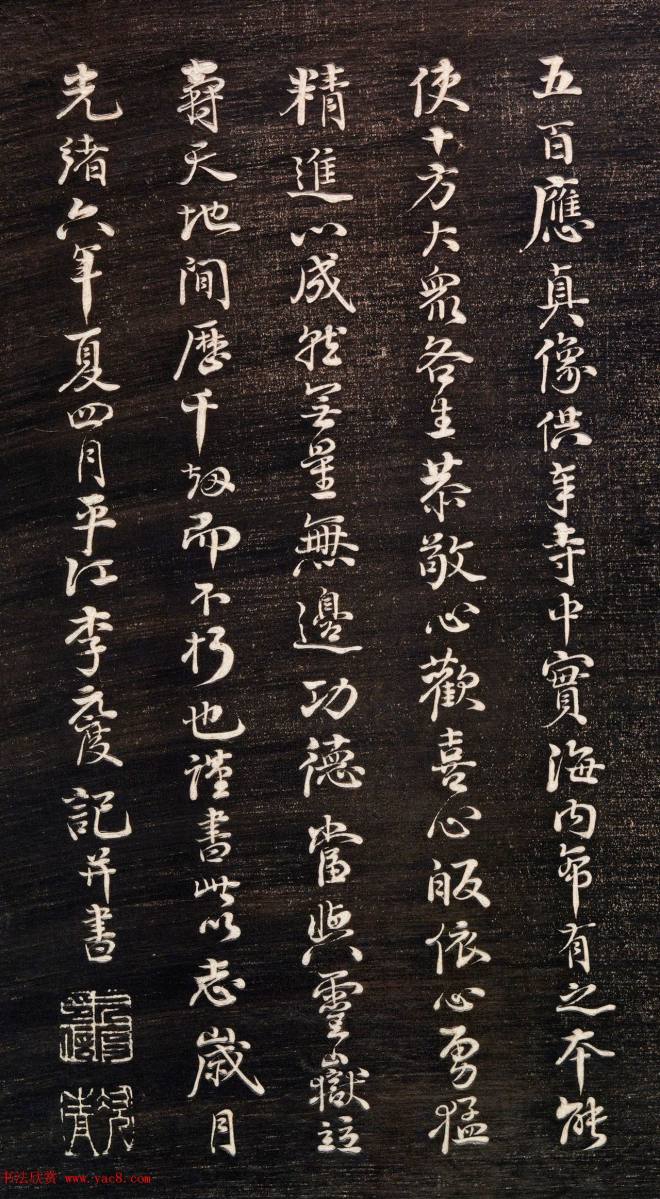 五百應真像供奉寺中實海内希有之本能
使十方大衆各生恭敬心歡喜心皈依心勇猛
精進心成就无量無邊功德當與靈嶽竝
壽天地閒歷千劫而不朽也謹書此以志歲月
光緒六年夏四月平江李元度記并書
書法欣賞 www.yac8.com